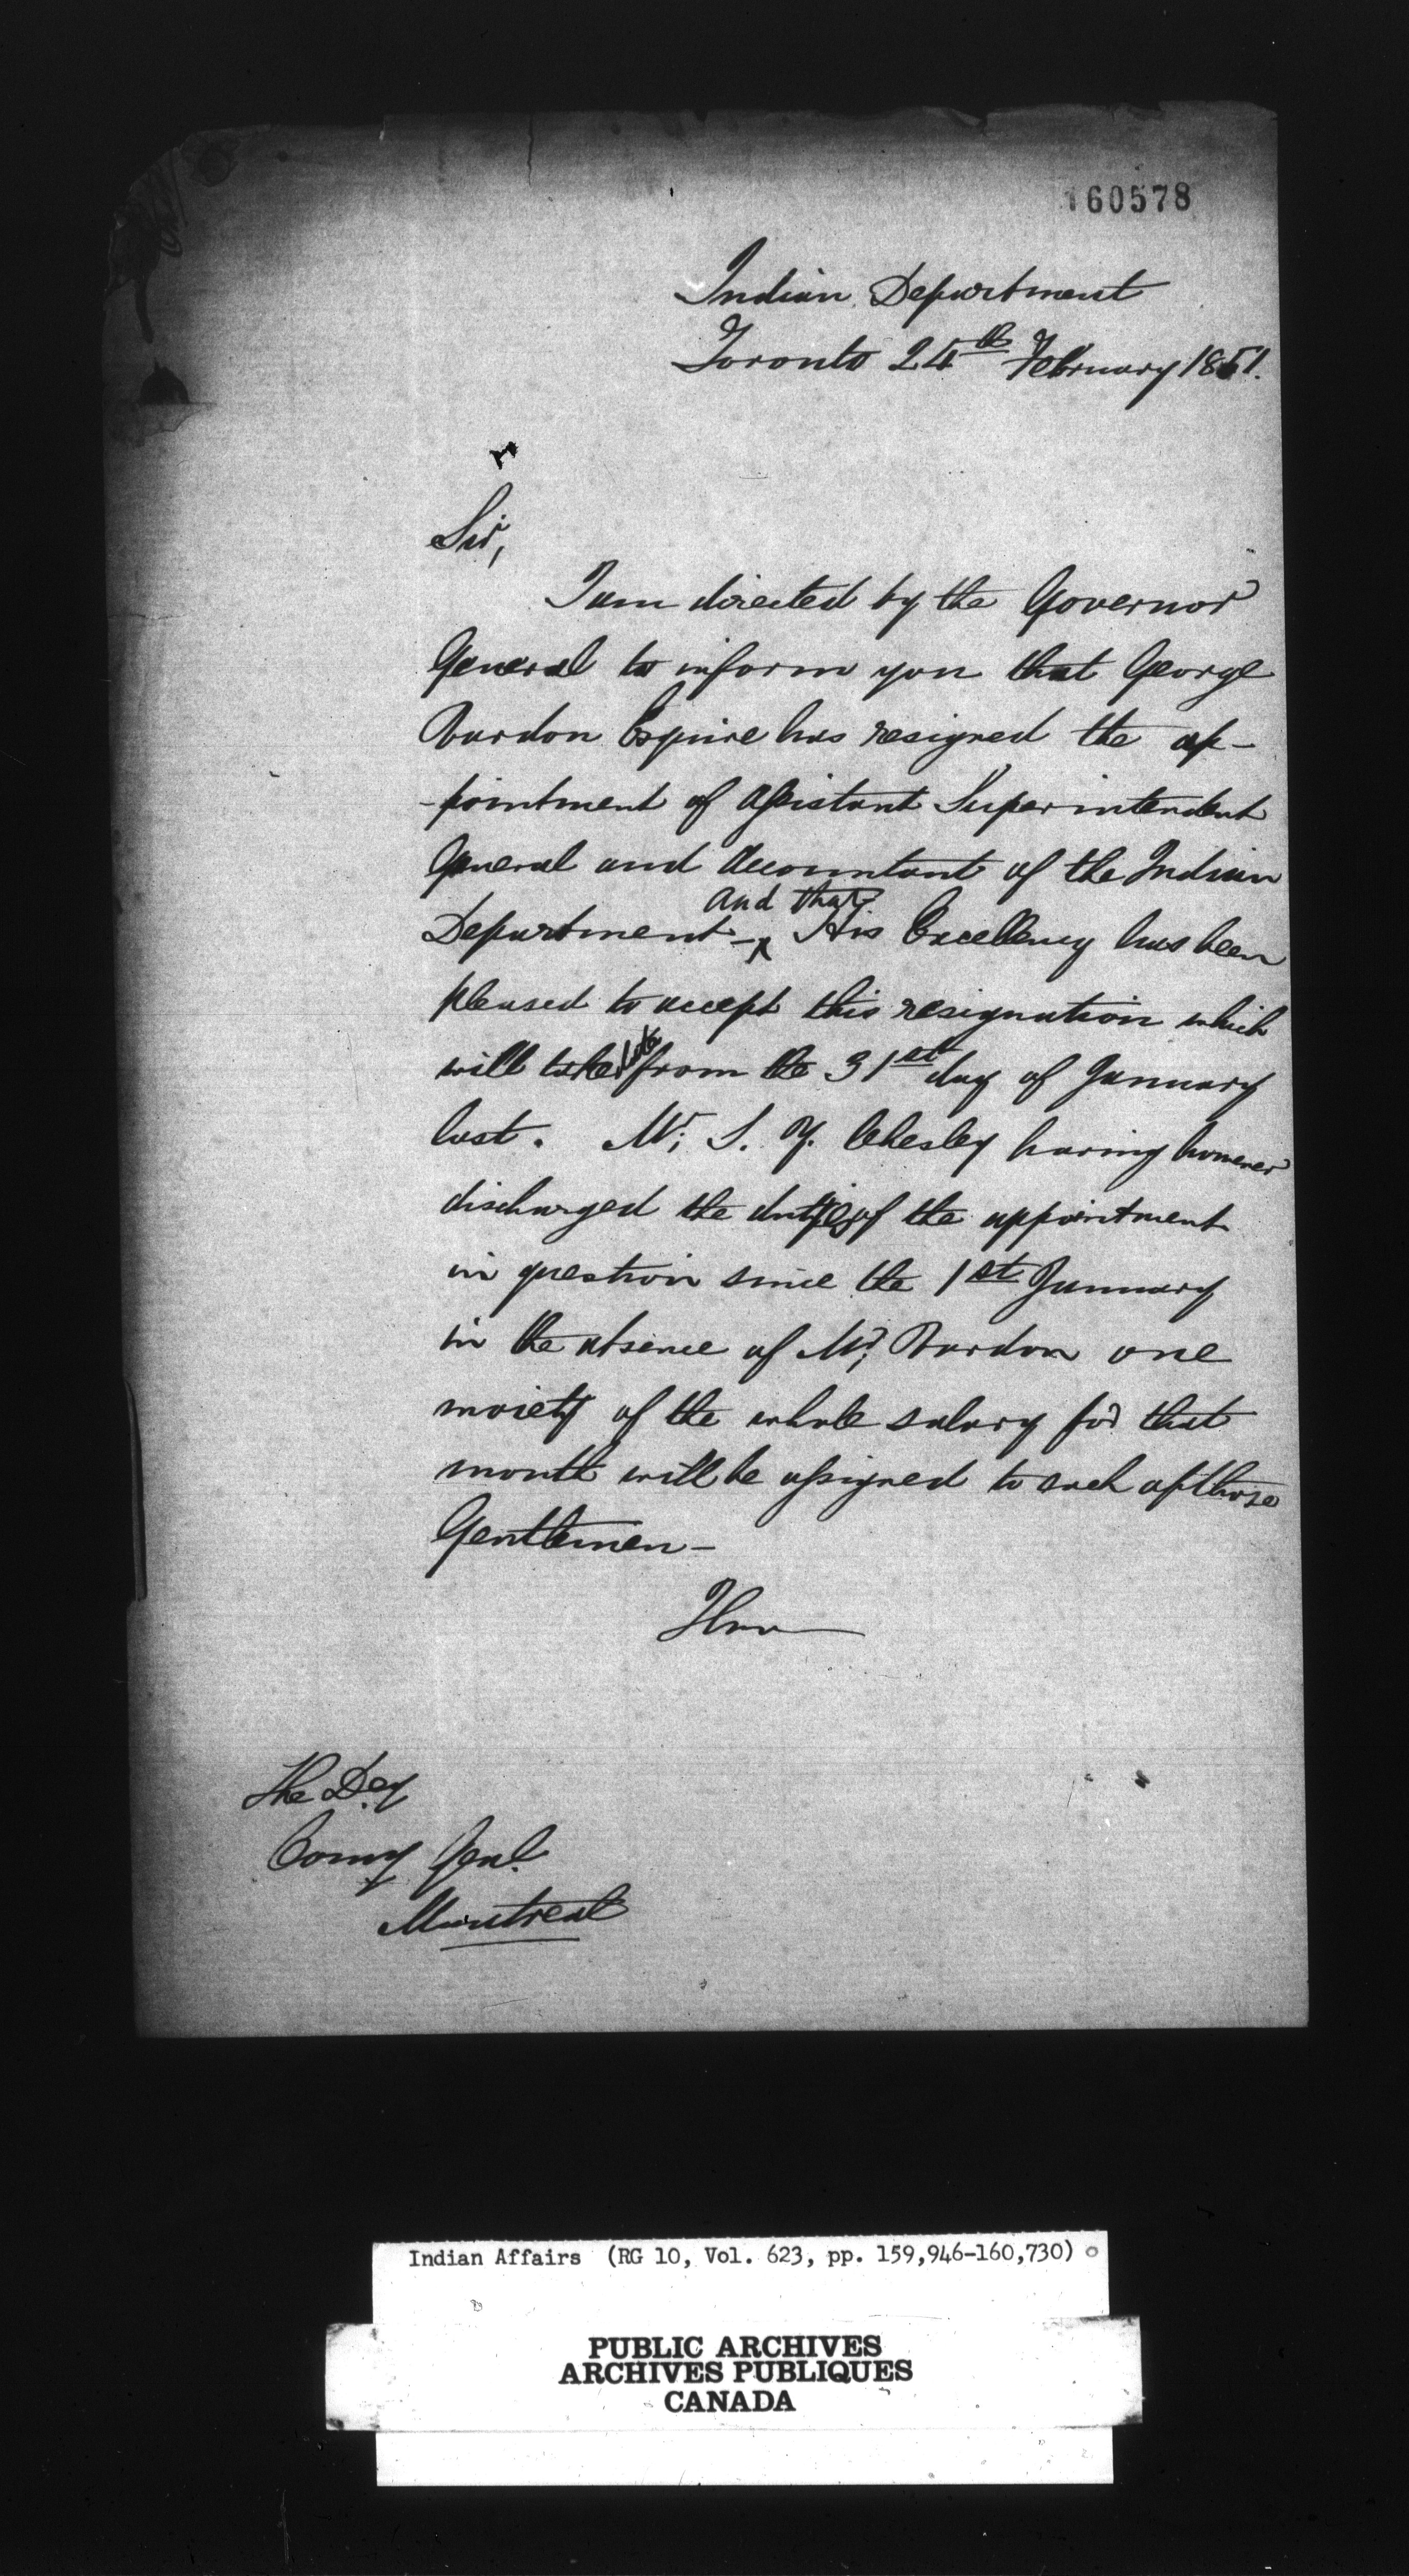 160578
Indian Department
Toronto 24th February 1851.
Sir,
I am directed by the Governor
General to inform you that George
Vardon Esquire has resigned the ap-
-pointment of Assistant Superintendent
General and Accountant of the Indian
and that
Department - ^ His Excellency has been
pleased to accept this resignation which
will take date from the 31st day of January
last. Mr. S. Y. Chesley having however
discharged the duties of the appointment
in question since the 1st January
in the absence of Mr. Vardon one
moiety of the whole salary for that
month will be assigned to each of those
Gentlemen -
The Dey
Comy Genl.
Montreal
Indian Affairs (RG 10, Vol. 623, pp. 159,946-160,730)
PUBLIC ARCHIVES
ARCHIVES PUBLIQUES
CANADA